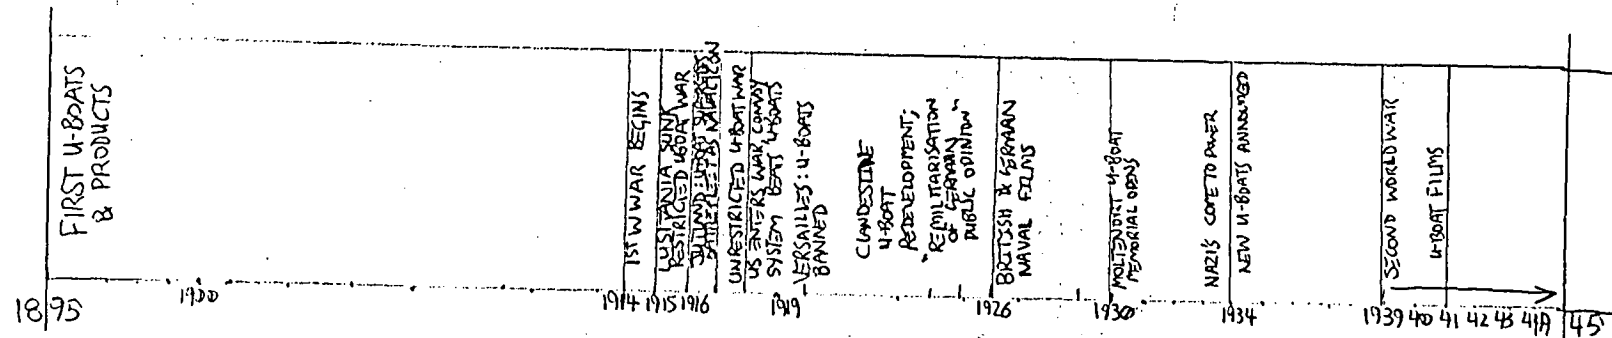 FIRST U-BOATS
& PRODUCTS
1ST W WAR BEGINS
LUSITANIA SUNK
RESTRICTED UBOA WAR
JUTLAND: U-BOAT
UNRESTRICTED U-BOAT WAR
US ENTERS WAR CONVOY
SYSTEM BEATS U-BOATS
VERSAILLES: U-BOATS
BANNED
CLANDESTINE
U-BOAT
REDEVELOPMENT;
"REMILITARISATION
OF GERMAN
PUBLIC OPINION"
BRITISH & GERMAN
NAVAL FILMS
MOLTENORT U-BOAT
MEMORIAL OPENS
NAZIS COME TO POWER
NEW U-BOATS ANNOUNCED
SECOND WORLD WAR
U-BOAT FILMS
1895
1900
1914
1915
1916
1919
1926
1930
1934
1939 40 41 42 43 44
45